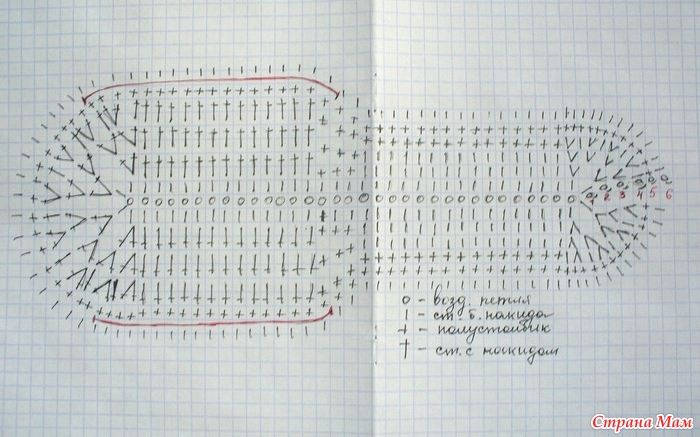 1 2 3 4 5 6
о - возд. петля
| - ст. б. накида
+ - полустолбик
† - ст. с накидом
Страна Мам